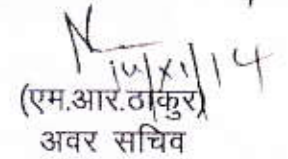 14/XI/14
(एम.आर.ठाकुर)
अवर सचिव